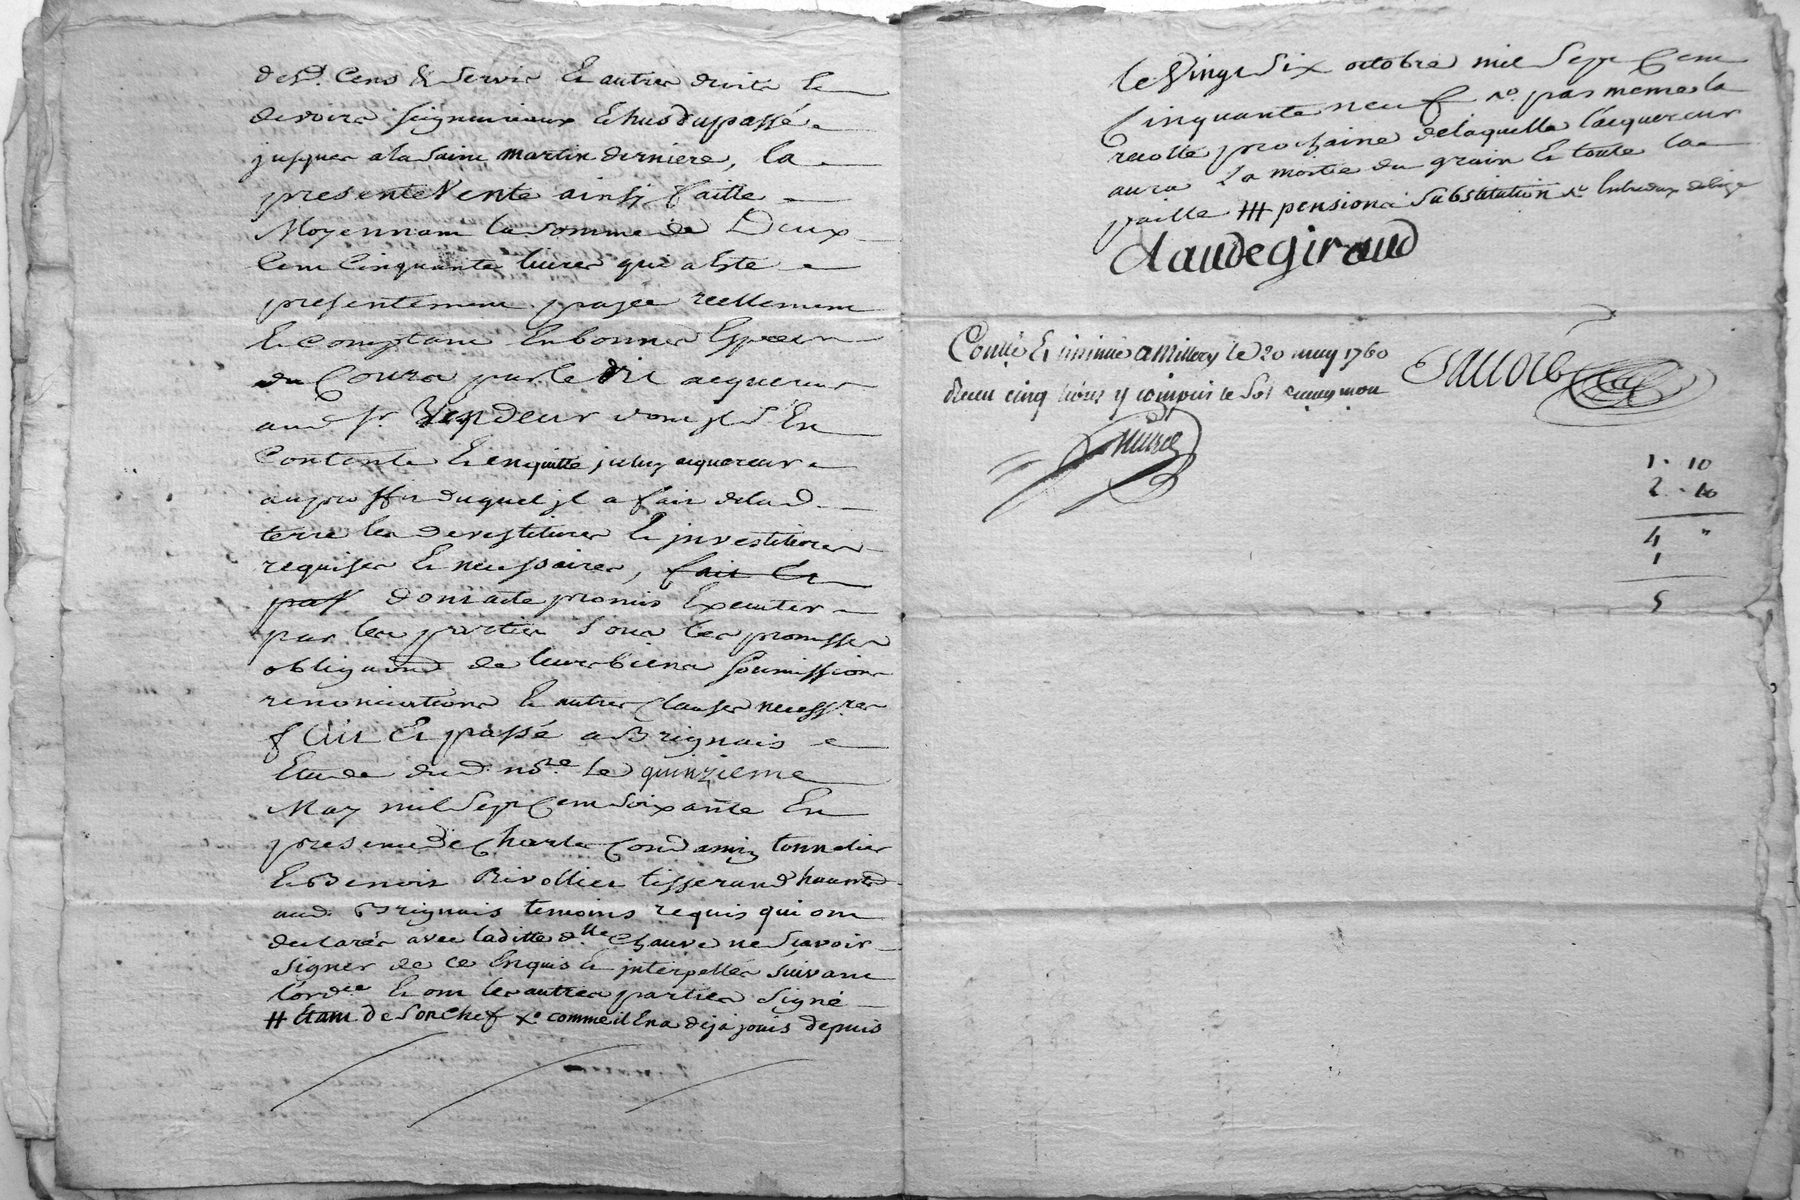 desd. Cens & Servis & autres droits &
devoirs seigneuriaux & hus du passé
jusques a la Saint martin derniere, la
presente Vente ainsy faitte
Moyennant la somme de Deux
Cent Cinquante livres qui a Esté
presentement payée reellement
& comptant En bonnes Especes
du Cours par le dit acquereur
aud. Sr. Vendeur dont il S'En
Contente & en quitte led. acquereur
au proffit duquel il a fait de lad.
terre les devestitures & investitures
requises & necessaires, fait &
pas dont acte promis Executer
par les parties sous les promesses
obligaons de leurs biens soumissions
renonciations & autres Clauses necessres
fait Et passé a Brignais
Etude dud. nore. Le quinzieme
May mil Sept Cent Soixante En
presence de Charle Condamin tonnelier
& Benoit Rivollier tisserand
aud. Brignais temoins requis qui ont
declarés avec laditte dlle Chauve ne Sçavoir
signer de ce Enquis & interpellés suivant
l'ordce & ont les autres parties Signé
# Etant de Son Chef Xo comme il En a deja jouis depuis
le Vingt Six octobre mil Sept Cent
Cinquante neuf no. pas meme la
recolte prochaine de laquelle l'acquereur
aura la moitié du grain & toute la
paille ## pensions Substitution
claude giraud
Conllé Et insinué a Millery le 20 may 1760
Receu cinq livres y compris le Sol
1 - 10
2 - 10
4 "
1
5